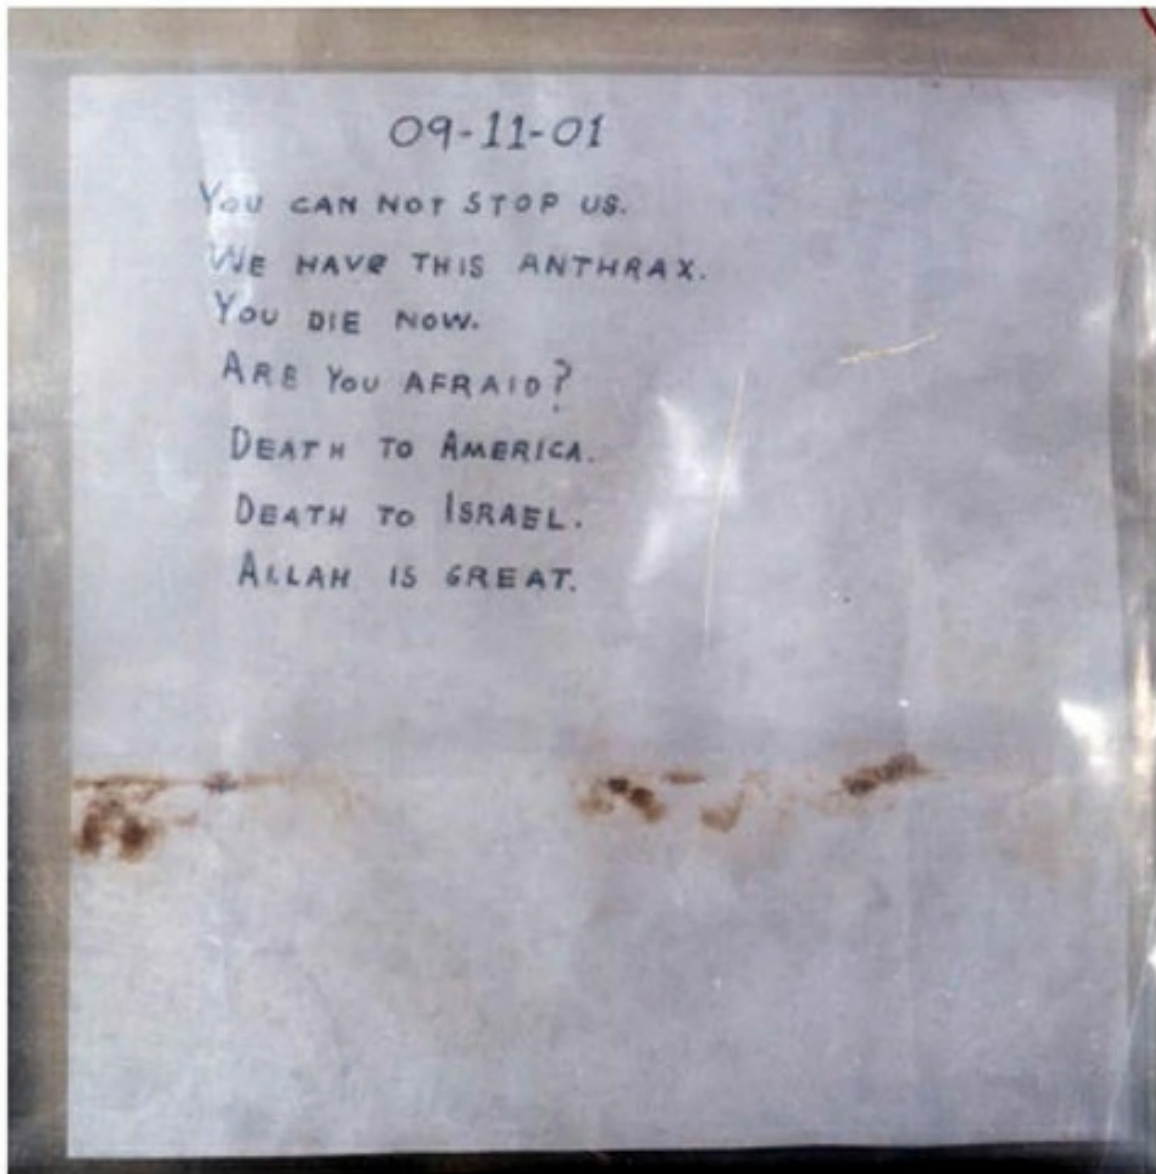 09-11-01
YOU CAN NOT STOP US.
WE HAVe THIS ANTHRAX.
YOU DIE NOW.
ARE YOU AFRAID?
DEATH TO AMERICA.
DEATH TO ISRAEL.
ALLAH IS GREAT.